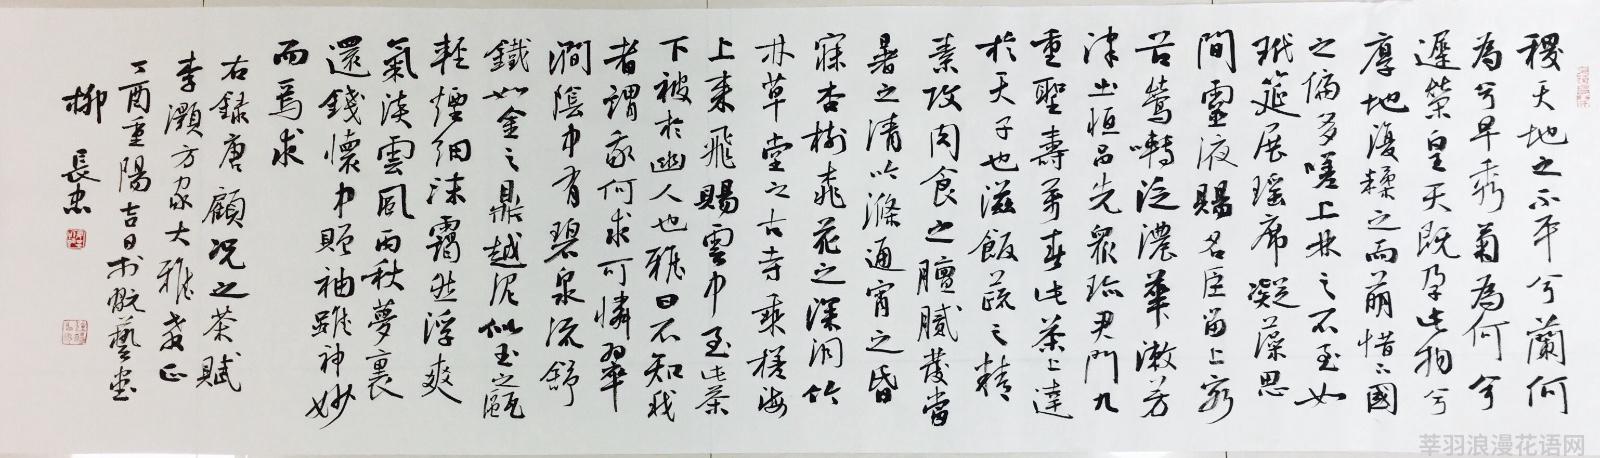 稷天地之不平兮蘭何
為兮早秀菊為何兮
遲榮皇天既孕此物兮
厚地復糅之而萌惜下國
之偏多嗟上林之不至如
玳筵展瑤席凝藻思
間靈液賜名臣留上客
谷鶯囀泛濃華漱芳
津出恒品先眾珍君門九
重聖壽萬春此茶上達
於天子也滋飯蔬之精
素攻肉食之膻膩發當
暑之清吟滌通宵之昏
寐杏樹桃花之深洞竹
林草堂之古寺乘槎海
上來飛賜雲中至此茶
下被於幽人也雅曰不知我
者謂我何求可憐翠
澗陰中有碧泉流舒
鐵如金之鼎越泥似玉之甌
輕煙細沫靄然浮爽
氣淡雲風雨秋夢裏
還錢懷中贈袖雖神妙
而焉求
右錄唐顧況之茶賦
李灝方家大雅教正
丁酉重陽吉日於翫藝堂
柳長忠
莘羽浪漫花语网